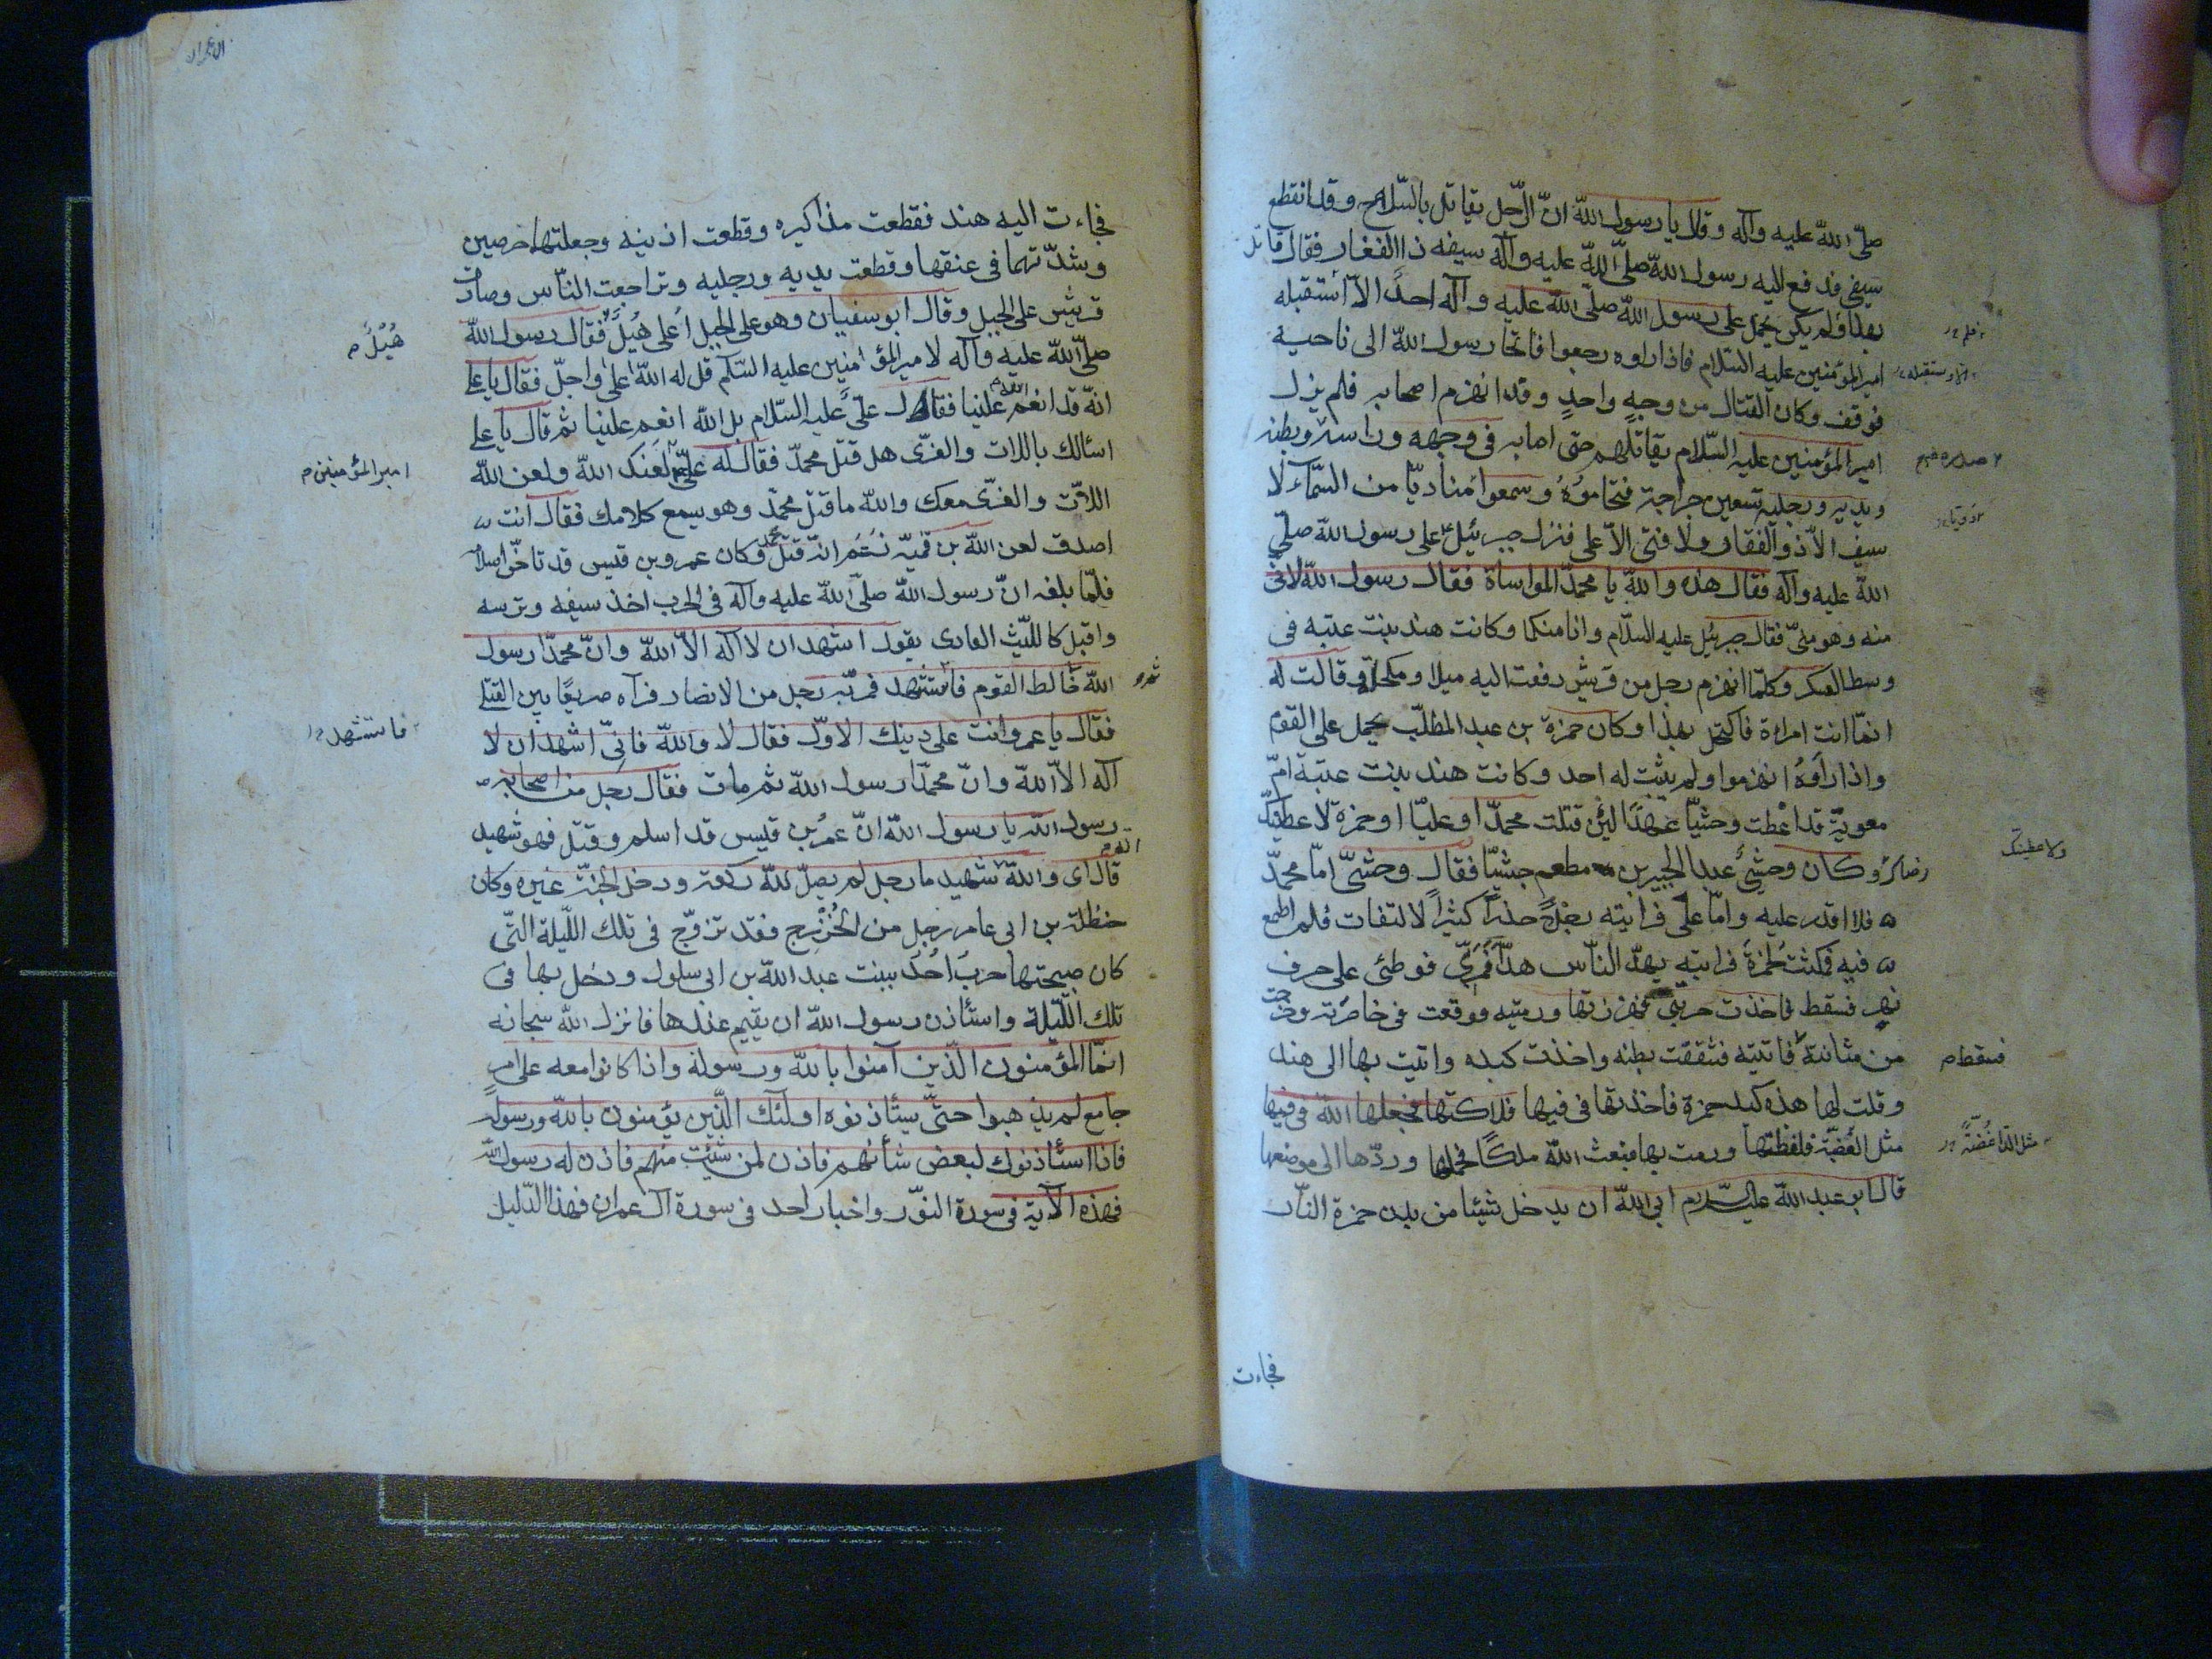 صلّى الله عليه وآله وقال يا رسول الله انّ الرّجل يقاتل بالسّلاح وقد انقطع
سيفى فدفع اليه رسول الله صلّى الله عليه وآله سيفه ذا الفغار فقال قاتل
بهذا ولم يكن يحمل على رسول الله صلّى الله عليه وآله احداً الاّ استقبله
امير المؤمنين عليه السّلام فاذا راوه رجعوا فانحاز رسول الله الى ناحية
فوقف وكان القتال من وجهٍ واحدٍ وقد انهزم اصحابه فلم يزل
امير المؤمنين عليه السّلام يقاتلهم حتى اصابه فى وجهه وراسه وبطنه
ويديه ورجليه تسعين جراحة فتحاموُهُ وسمعوا منادياً من السّماء لا
سيف الاّ ذو الفقار ولا فتى الاّ على فنزل جبرئيل على رسول الله صلّى
الله عليه وآله فقال هذه والله يا محمّد المواساة فقال رسول الله لانّى
منه وهو منّى فقال جبرئيل عليه السلّام وانا منكما وكانت هند بنت عتبه فى
وسط العسكر وكلّما انهزم رجل من قريش رفعت اليه ميلا ومكحلة وقالت له
انّما انت امراءة فاكتحل بهذا وكان حمزة بن عبد المطلّب يحمل على القوم
واذا رأوهُ انهزموا ولم يثبت له احد وكانت هند بنت عتبة امّ
معوية قد اعطت وحشيّاً عهدًا لئن قتلت محمّداً او عليّا او حمزة لاعطينّك
رضاك وكان وحشىّ عبدا لجبير بن مطعم حبشيّا فقال وحشىّ امّا محمّد
فلا اقدر عليه وامّا علىّ فرايته رجلاً حذراً كثيراً لالتفات فلم اطمع
فيه فكمنت لحمزة فرايته يهدّ الناّس هدّاً فمرّ بى فوطئى على حرف
نهر فسقط فاخذت حربتى فهززتها ورميته فوقعت فى خاصرته وخرجت
من مثانته فاتيته فشققت بطنه واخذت كبده واتيت بها الى هند
وقلت لها هذه كبد حمزة فاخذتها فى فيها فلاكتها فجعلها الله فى فيها
مثل الغُضبّة فلفظتها ورمت بها فبعث الله ملكاً فحملها وردّها الى موضعها
قال ابو عبد الله عليه السّلام ابى الله ان يدخل شيئا من بدن حمزة النّار
فجاءت
فلم
صدره
ولاعطينك
فسقط م
مثل الداغُضّةٍ
ال عمران
فجاءت اليه هند فقطعت مذاكيره وقطعت اذنيه وجعلتها خرصين
وشدّتهما فى عنقها وقطعت يديه ورجليه وتراجعت النّاس وصارت
قريش على الجبل وقال ابو سفيان وهو على الجبل اُعلى هُبُل فقال رسول الله
صلّى الله عليه وآله لامير المؤمنين عليه السّلم قل له الله اعلى واجلّ فقال يا على
انّه قد انعم علينا فقال علىّ عليه السّلام بل الله انعم علينا ثم قال يا على
اسئالك باللات والعزّى هل قتل محمدّ فقال له علىّ لعنك الله ولعن الله
اللاّت والعزّى معك والله ما قتل محمّد وهو يسمع كلامك فقال انت
اصدق لعن الله بن قميّه زعم انّه قتل محمد وكان عمرو بن قيس قد تاخّر اسلامه
فلّما بلغه انّ رسول الله صلّى الله عليه وآله فى الحرب اخذ سيفه وترسه
واقبل كالليّث العادى يقول اشهد ان لا اله الاّ الله وانّ محمدّا رسول
الله خالط القوم فاستشهد فمرّ به رجل من الانصار فرآه صريعًا بين القتلى
فقال يا عمرو انت على دينك الاوّل فقال لا والله فانّى اشهد ان لا
اله الاّ الله وانّ محمدّا رسول الله ثم مات فقال رجل من اصحابه
رسول الله يا رسول الله انّ عمر بن قيس قد اسلم وقتل فهو شهيد
قال اى والله شهيد ما رجل لم يصلّ لله ركعة ودخل الجنّة غيره وكان
حنظلة بن ابى عامر رجل من الخزرج فقد تزوّج فى تلك اللّيلة التّى
كان صبيحتها حربَ اُحُدَ ببنت عبد الله بن ابى سلول ودخل بها فى
تلك اللّيلة واستأذن رسول الله ان يقيم عندها فانزل الله سبحانه
انمّا المؤمنون الّذين آمنوا بالله ورسوله واذا كانوا معه على امرٍ
جامع لم يذهبوا حتّى يستأذنوه اولئك الّذين يؤمنون بالله ورسوله
فاذا استأذنوك لبعض شأنهم فاذن لمن شئت منهم فاذن له رسول الله
فهذه الآية فى سورة النوّر واخبار احد فى سورة آل عمران فهذا الدّليل
هُبُلُ م
امير المؤمنين م
فاستشهد